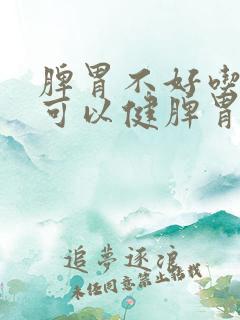 脾胃不好喫
可以健脾胃
追夢逐浪
未经同意禁止转载